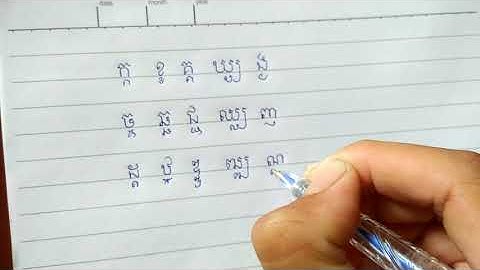 date month year
ក្ក ខ្ខ គ្គ ឃ្ឃ ង្ង
ច្ច ឆ្ឆ ជ្ជ ឈ្ឈ ញ្ញ
ដ្ដ ឋ្ឋ ឌ្ឌ ឍ្ឍ ណ្ណ